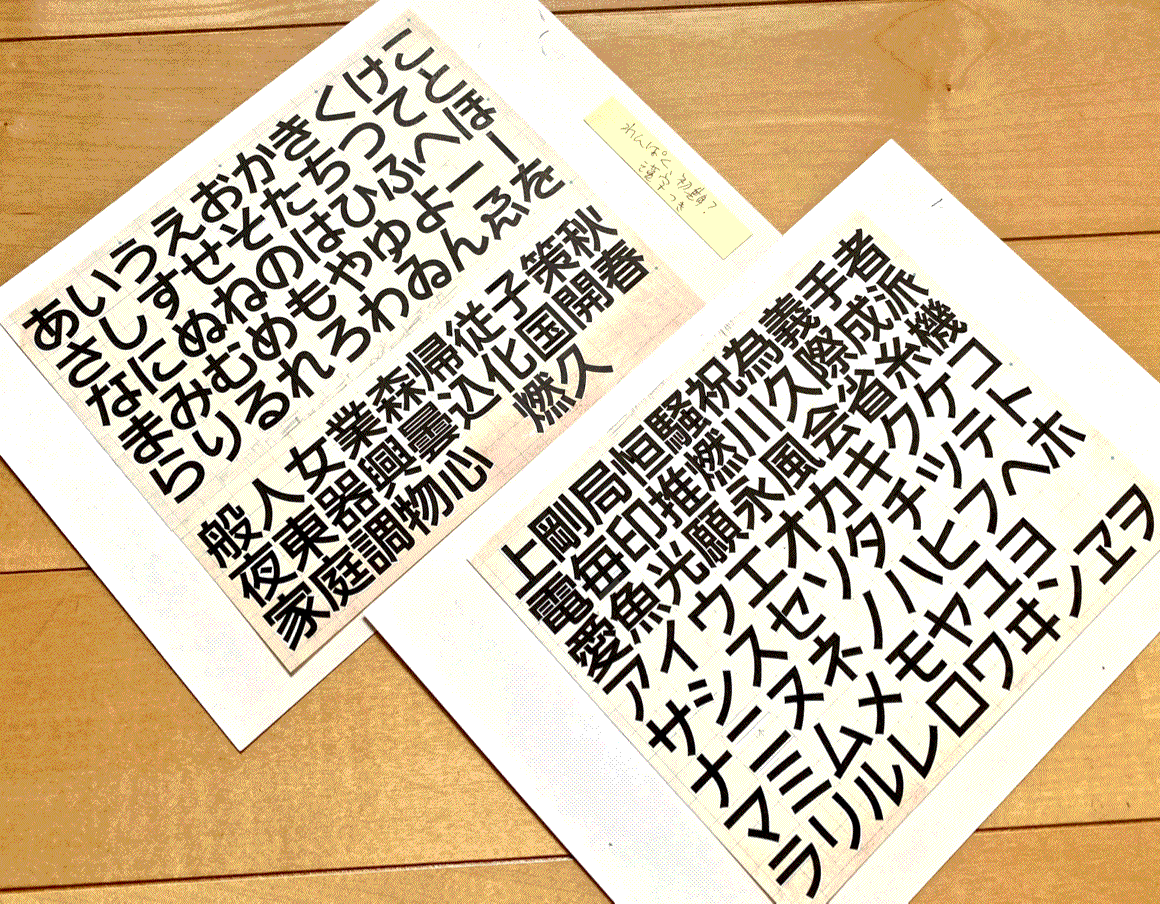 あいうえおかきくけこ
さしすせそたちつてと
なにぬねのはひふへほ
まみむめもやゆよ一ー
らりるれろわゐんゑを
般人女業森帰従子策秋
夜東器興曇込化国開春
家庭調物心 燃久
わんぱく 初期?
漢字つき
上剛局恒騒祝為義手者
電毎印推燃川久際成派
愛魚光願永風会省糸機
アイウエオカキクケコ
サシスセソタチツテト
ナニヌネノハヒフヘホ
マミムメモヤユヨ
ラリルレロワヰンヱヲ